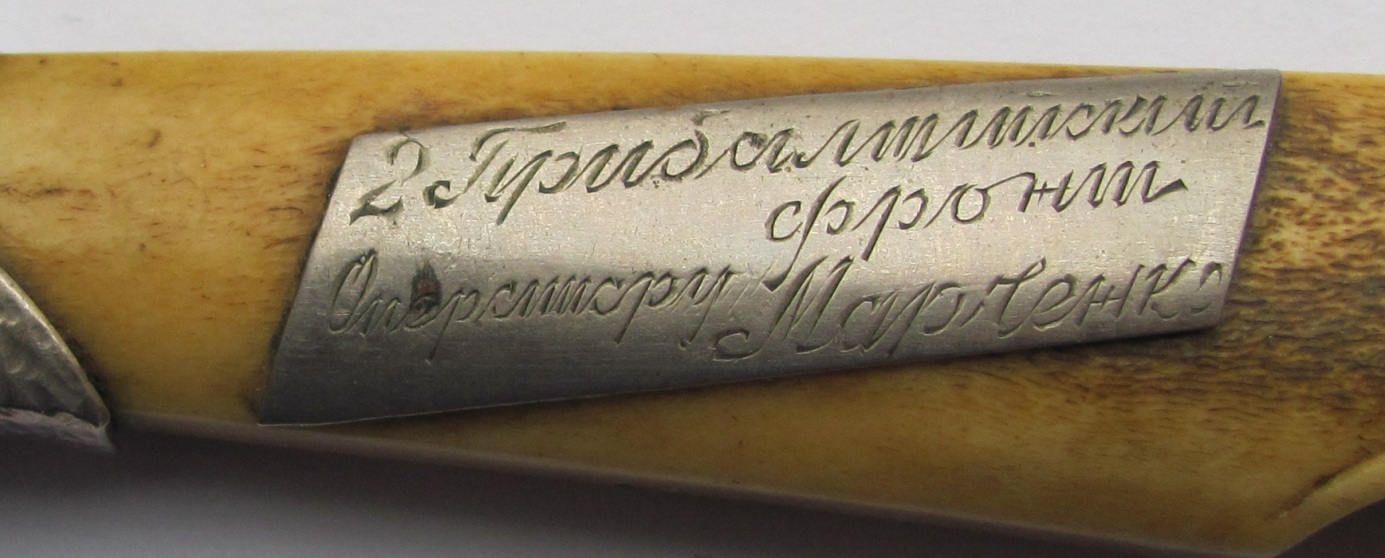 2 Прибалтийский
фронт
Оператору Марченко